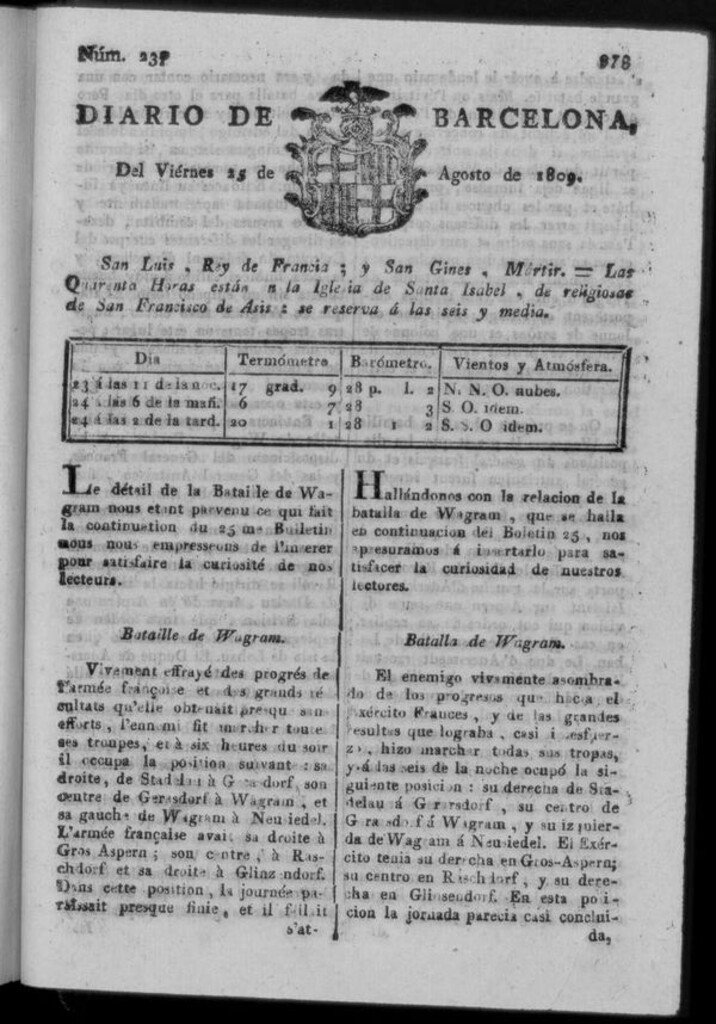 Núm. 237 978
DIARIO DE BARCELONA,
Del Viérnes 25 de Agosto de 1809.
San Luis, Rey de Francia; y San Gines, Mártir. = Las
Quarenta Horas están n la Iglesia de Santa Isabel, de religiosas
de San Francisco de Asis: se reserva á las seis y media.
Dia Termómetro Barómetro. Vientos y Atmósfera.
23 á las 11 de la noc. 17 grad. 9 28 p. l. 2 N. N. O. nubes.
24 á las 6 de la mañ. 6 7 28 3 S. O. idem.
24 á las 2 de la tard. 20 1 28 1 2 S. S. O idem.
Le détail de la Bataille de Wa-
gram nous etant parvenu ce qui fait
la continuation du 25 me Bulletin
nous nous empressons de l'inserer
pour satisfaire la curiosité de nos
lecteurs.
Bataille de Wagram.
Vivement effrayé des progrés de
l'armée françoise et des grands ré
sultats qu'elle obtenait presqu san
efforts, l'ennemi fit marcher toute
ses troupes, et à six heures du soir
il occupa la position suivant: sa
droite, de Stadelau à Gerasdorf, son
centre de Gerasdorf à Wagram, et
sa gauche de Wagram à Neusiedel.
L'armée française avait sa droite à
Gros Aspern; son centre, à Ras-
chdorf et sa droite à Glinzendorf.
Dans cette position, la journée pa-
raissait presque finie, et il fallait
s'at-
Hallándonos con la relacion de la
batalla de Wagram, que se halla
en continuacion del Boletin 25, nos
apresuramos á insertarlo para sa-
tisfacer la curiosidad de nuestros
lectores.
Batalla de Wagram.
El enemigo vivamente asombra-
do de los progresos que hacia el
Exército Frances, y de las grandes
resultas que lograba, casi
hizo marchar todas sus tropas,
y á las seis de la noche ocupó la si-
guiente posicion: su derecha de Sta-
delau á Gerarsdorf, su centro de
Gerasdorf á Wagram, y su izquier-
da de Wagram á Neusiedel. El Exér-
cito tenia su derecha en Gros-Aspern;
su centro en Raschdorf, y su dere-
cha en Glinsendorf. En esta posi-
cion la jornada parecia casi conclui-
da,